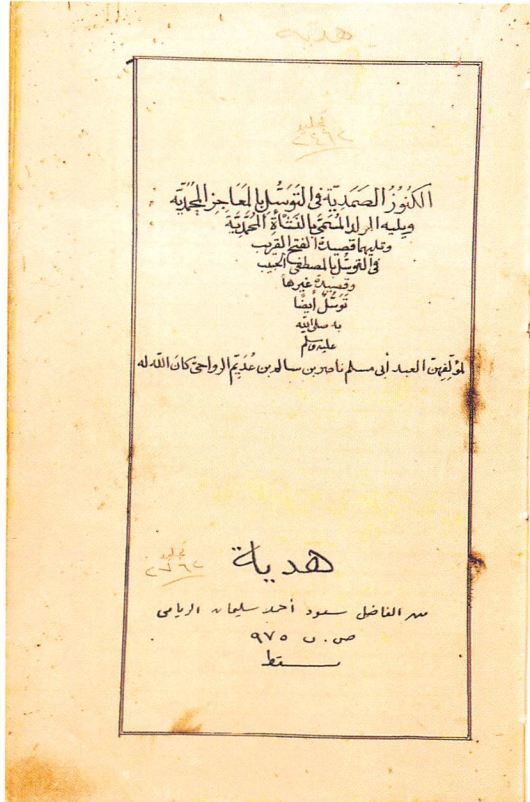 هدية
الكُنُوزُ الصَمَدِيّة فى التَوَسُّل بالمَعَاجِز المُحمَّدِيَّه
ويليه المولد المُسَمَّى بالنَشْأَةِ المُحمَّدِيَّة
وعليها قصيدة الفتح القريب
فى التوسُّل بالمصطفى الحبيب
وقصيدة غيرها
تَوَسُّل أيضًا
به صلى الله
عليه وسلم
لمؤلِّفِهنّ العبد أبى مسلم ناصر بن سالم بن عُدَيِّم الرواحيّ كانَ اللهُ له
هدية
من الفاضل سعود أحمد سليمان الريامى
ص. ب ٩٧٥
مسقط